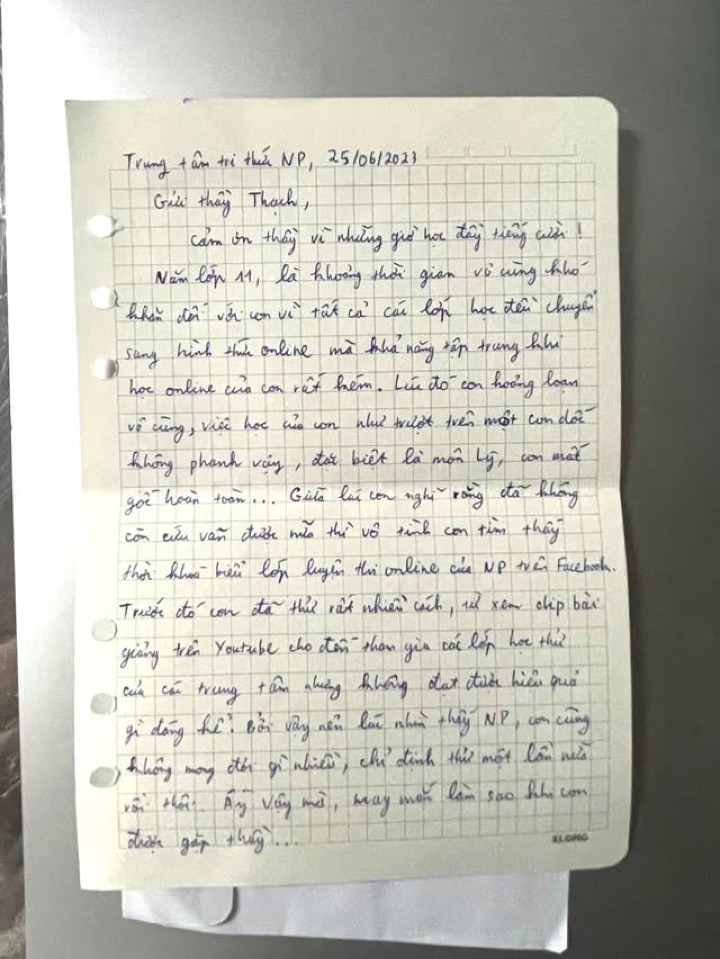 Trung tâm tri thức NP, 25/06/2023
Gửi thầy Thạch,
Cảm ơn thầy vì những giờ học đầy tiếng cười!
Năm lớp 11, là khoảng thời gian vô cùng khó
khăn đối với con vì tất cả các lớp học đều chuyển
sang hình thức online mà khả năng tập trung khi
học online của con rất kém. Lúc đó con hoảng loạn
vô cùng, việc học của con như trượt trên một con dốc
không phanh vậy, đặc biệt là môn Lý, con mất
gốc hoàn toàn... Giữa lúc con nghĩ rằng đã không
còn cứu vãn được nữa thì vô tình con tìm thấy
thời khoá biểu lớp luyện thi online của NP trên Facebook.
Trước đó con đã thử rất nhiều cách, từ xem clip bài
giảng trên Youtube cho đến tham gia các lớp học thử
của các trung tâm nhưng không đạt được hiệu quả
gì đáng kể. Bởi vậy nên lúc nhìn thấy NP, con cũng
không mong đợi gì nhiều, chỉ định thử một lần nữa
rồi thôi. Ấy vậy mà, may mắn làm sao khi con
được gặp thầy...
KLONG